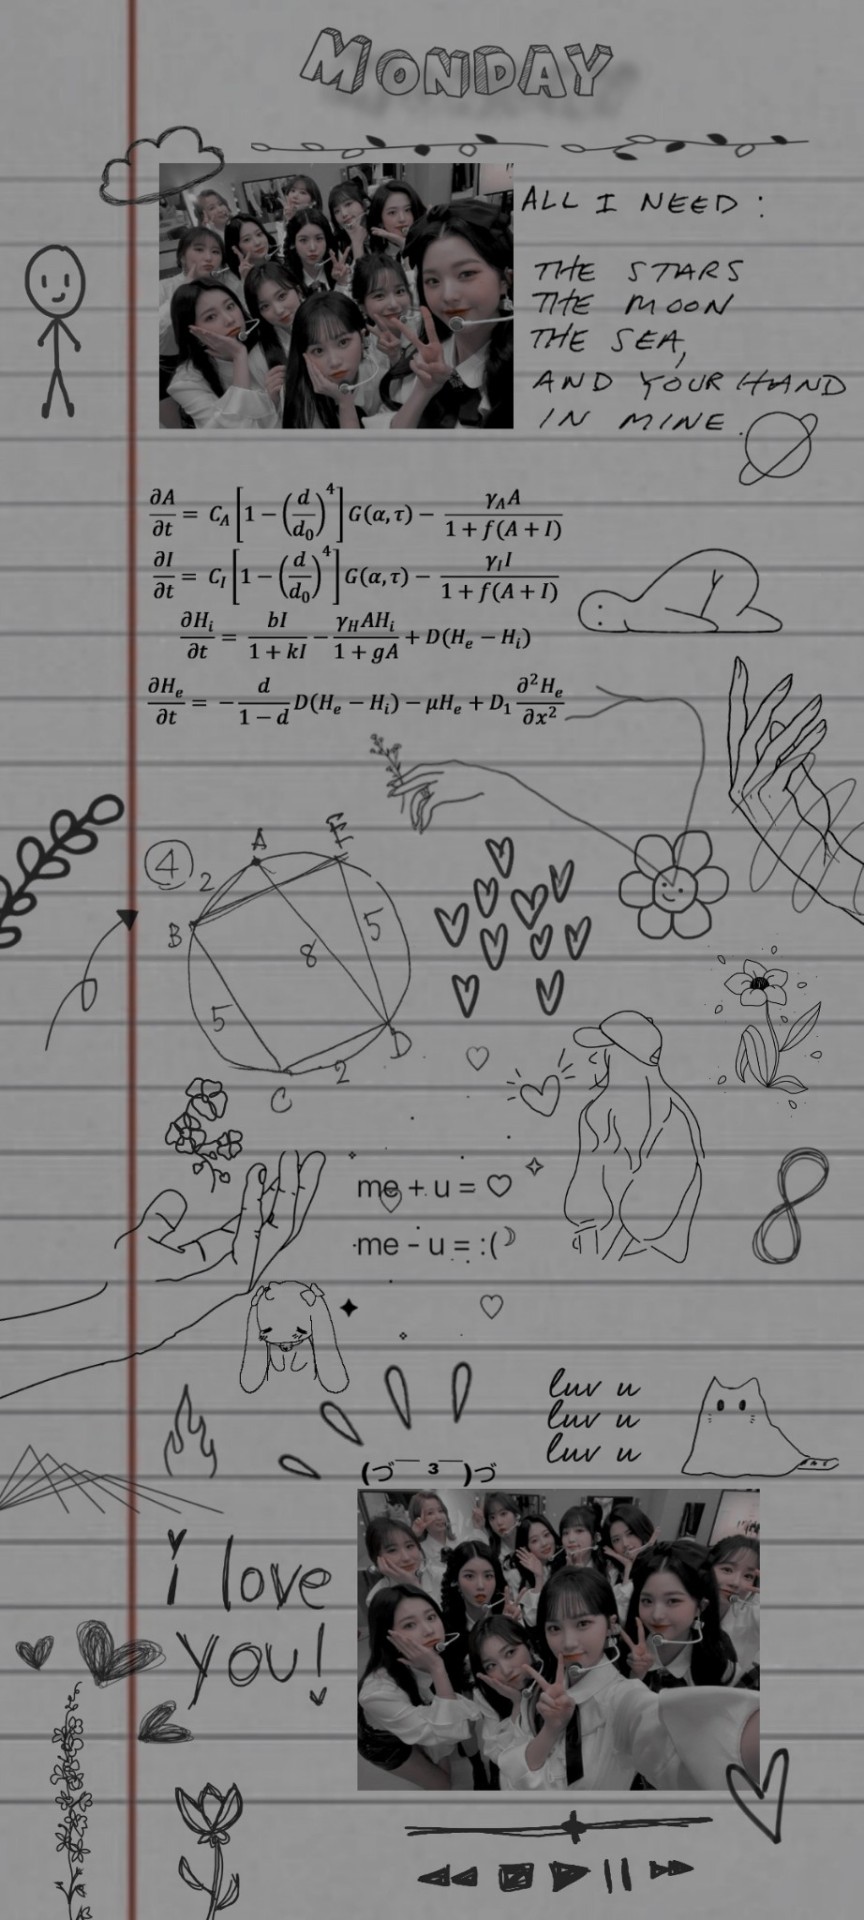 MONDAY
ALL I NEED :
THE STARS
THE MOON
THE SEA,
AND YOUR HAND
IN MINE.
∂A/∂t = C_A [1 − (d/d₀)⁴] G(α,τ) − γ_A A / (1 + f(A + I))
∂I/∂t = C_I [1 − (d/d₀)⁴] G(α,τ) − γ_I I / (1 + f(A + I))
∂H_i/∂t = bI / (1 + kI) − γ_H AH_i / (1 + gA) + D(H_e − H_i)
∂H_e/∂t = − d / (1 − d) D(H_e − H_i) − μH_e + D₁ ∂²H_e/∂x²
4
A E
2
B
8 5
5
D
2
C
me + u = ♡
me - u = :(
luv u
luv u
luv u
(づ￣ ³￣)づ
i love
you!